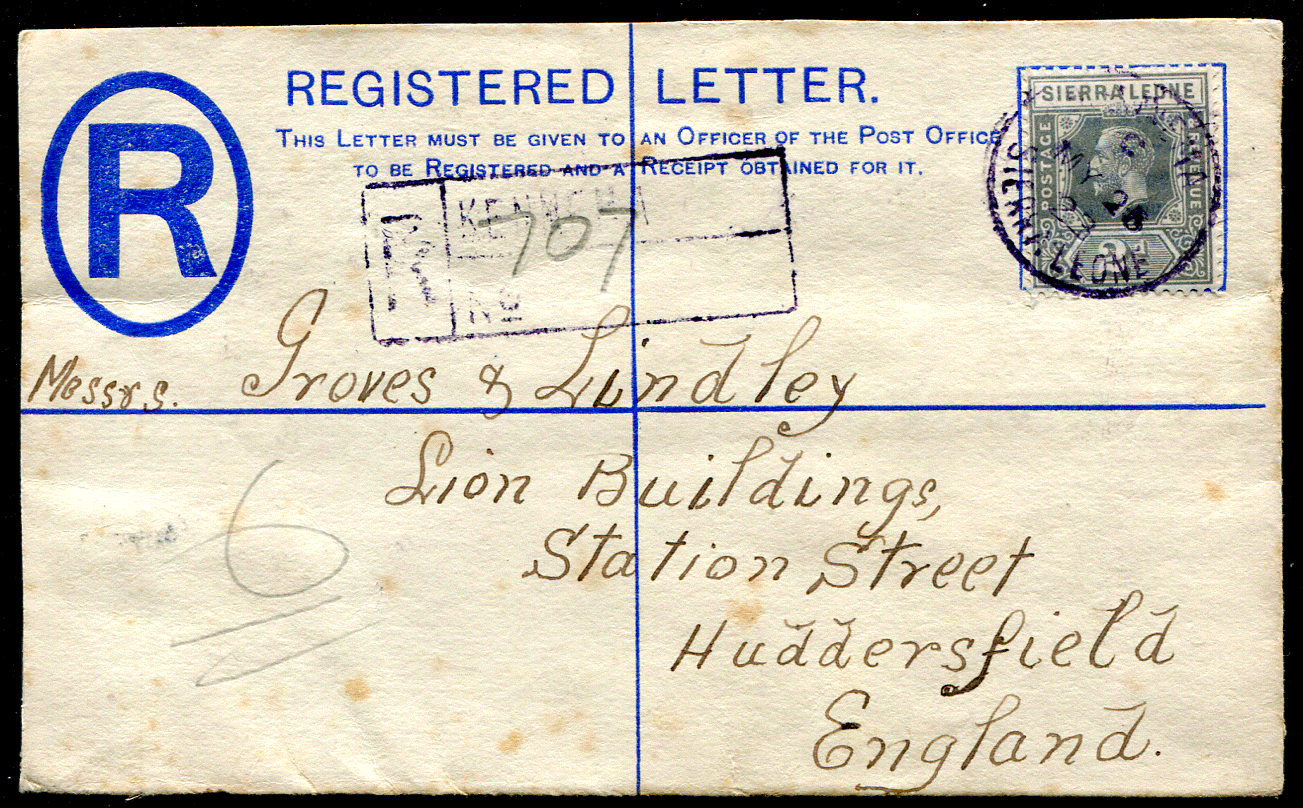 REGISTERED LETTER.
THIS LETTER MUST BE GIVEN TO AN OFFICER OF THE POST OFFICE
TO BE REGISTERED AND A RECEIPT OBTAINED FOR IT.
R
SIERRA LEONE
POSTAGE
REVENUE
2d
MY 26
SIERRA LEONE
R
No
707
Messrs. Groves & Lindley
Lion Buildings,
Station Street
Huddersfield
England.
6